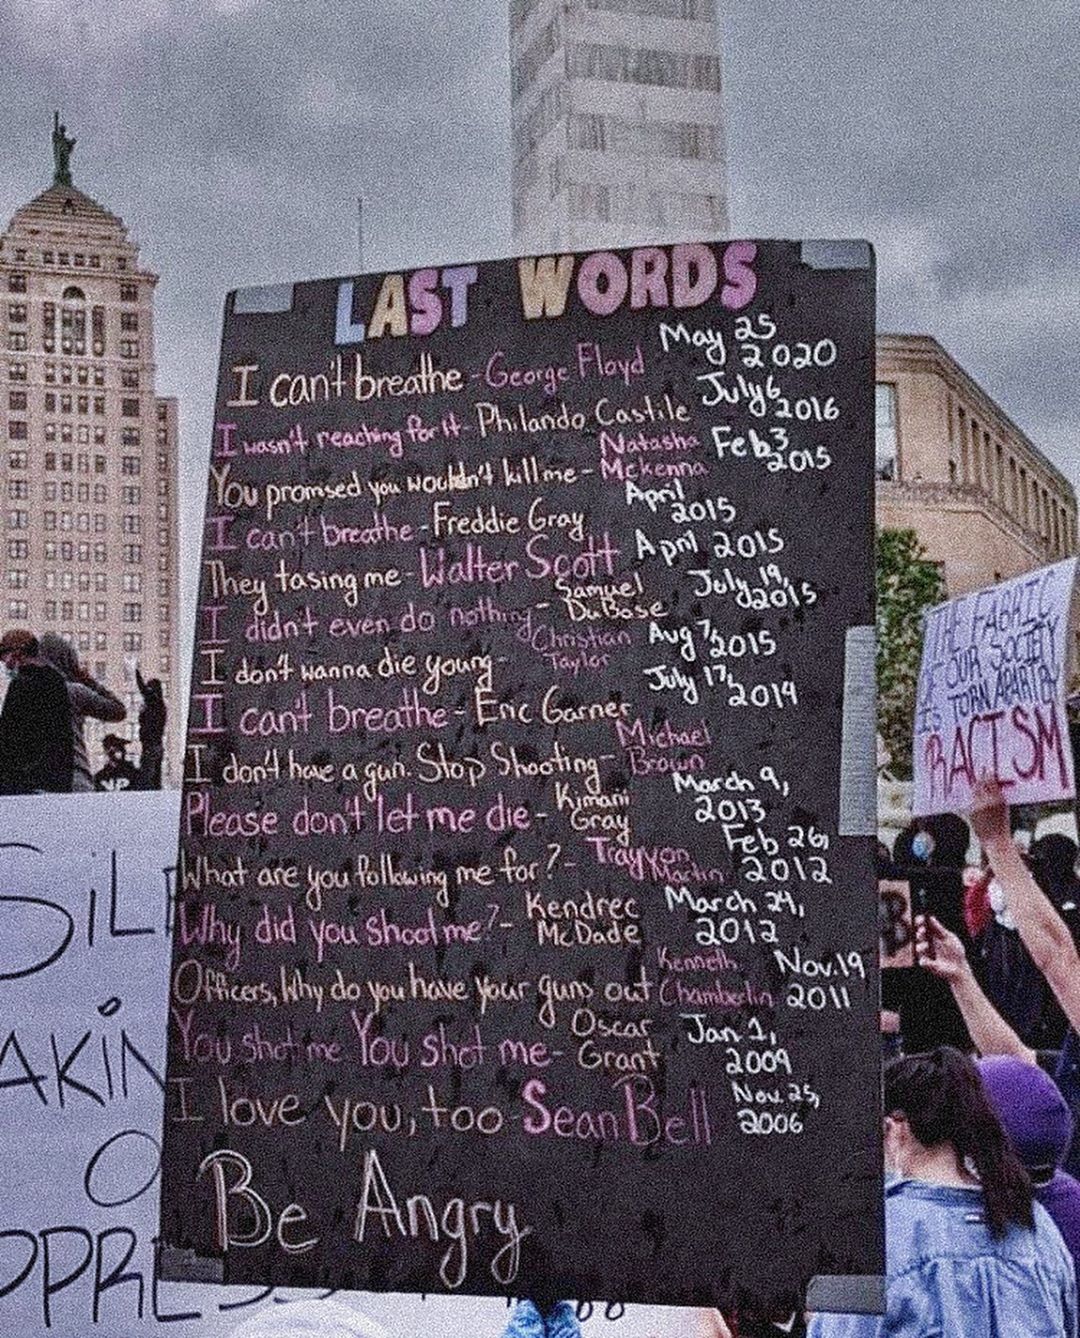 LAST WORDS
I can't breathe - George Floyd May 25 2020
I wasn't reaching for it - Philando Castile July 6 2016
You promised you wouldn't kill me - Natasha Mckenna Feb 3 2015
I can't breathe - Freddie Gray April 2015
They tasing me - Walter Scott April 2015
I didn't even do nothing - Samuel DuBose July 19, 2015
I don't wanna die young - Christian Taylor Aug 7, 2015
I can't breathe - Eric Garner July 17, 2014
I don't have a gun. Stop Shooting - Michael Brown
Please don't let me die - Kimani Gray March 9, 2013
What are you following me for? - Trayvon Martin Feb 26, 2012
Why did you shoot me? - Kendrec McDade March 24, 2012
Officers, Why do you have your guns out Kenneth Chamberlin Nov. 19 2011
You shot me You shot me - Oscar Grant Jan 1, 2009
I love you, too - Sean Bell Nov. 25, 2006
Be Angry
THE FABRIC
OF OUR SOCIETY
IS TORN APART BY
RACISM
SIL
AKIN
O
PPRESS